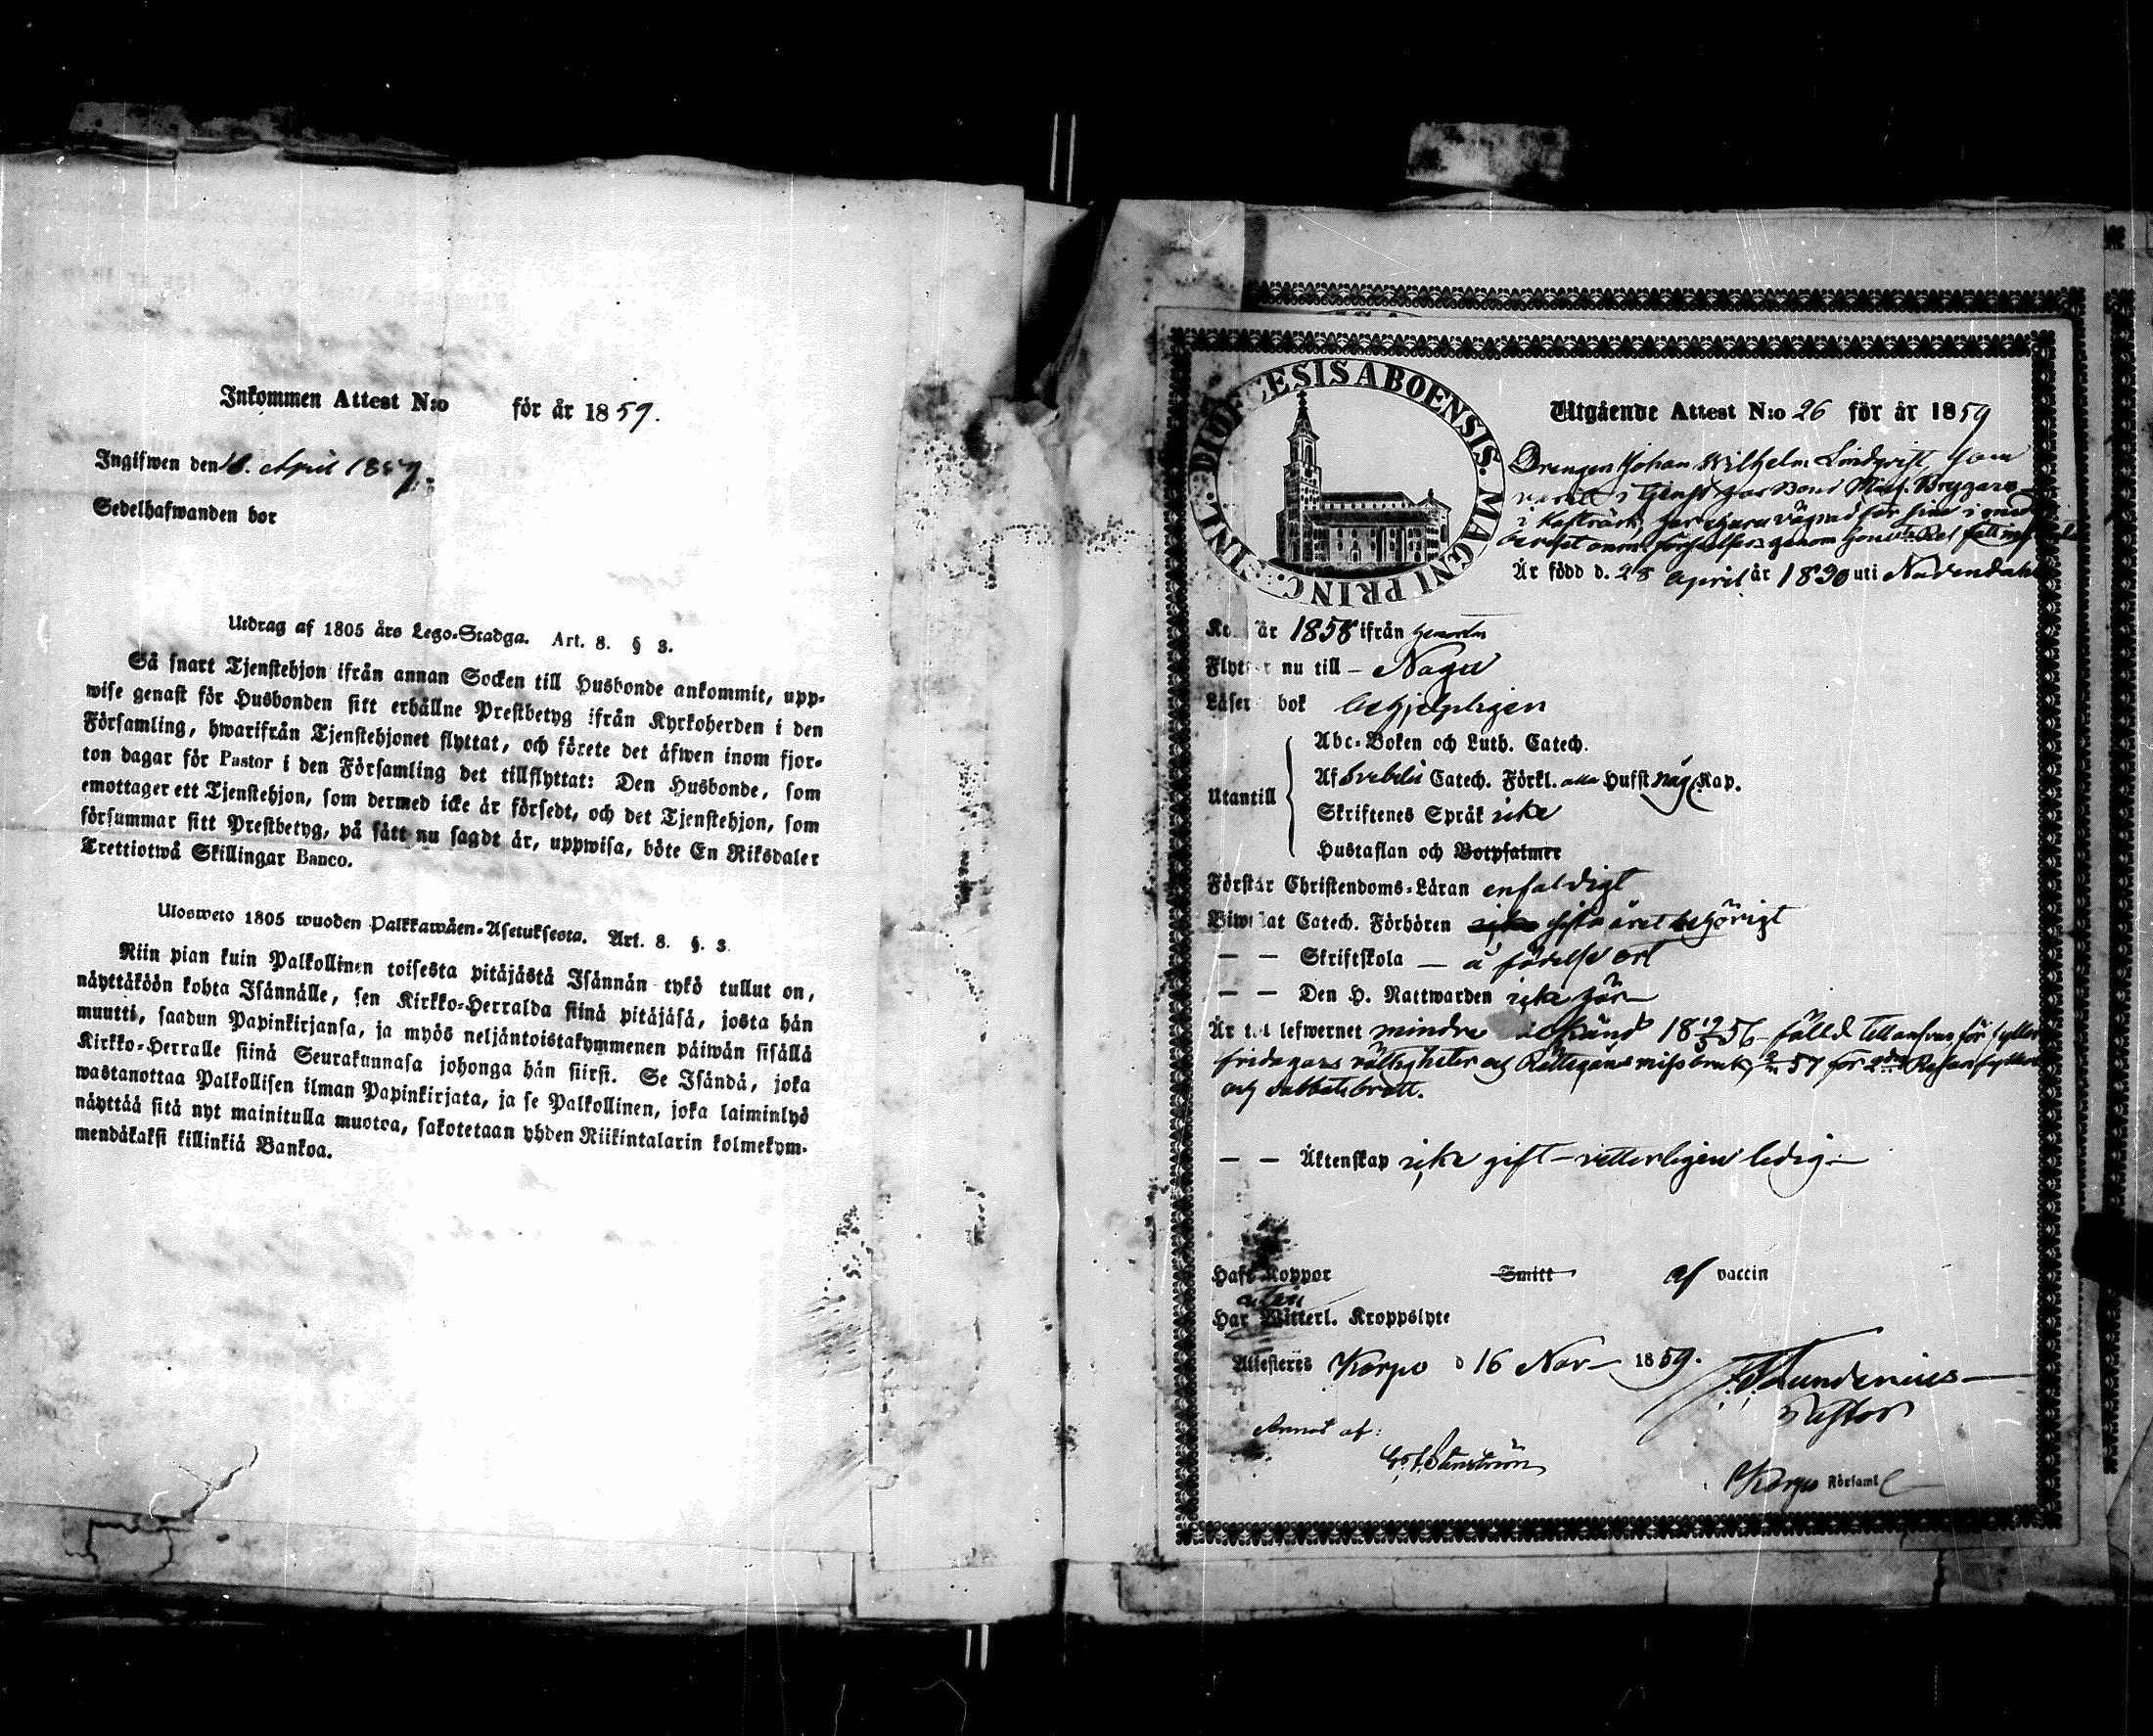 Inkommen Attest N:o för år 1859.
Ingifwen den 18. April 1859.
Sedelhafwanden bor
Utdrag af 1805 års Lego-Stadga. Art. 8. § 3.
Så snart Tjenstehjon ifrån annan Socken till Husbonde ankommit, upp-
wise genast för Husbonden sitt erhållne Prestbetyg ifrån Kyrkoherden i den
Församling, hwarifrån Tjenstehjonet flyttat, och förete det äfwen inom fjor-
ton dagar för Pastor i den Församling det tillflyttat: Den Husbonde, som
emottager ett Tjenstehjon, som dermed icke är försedt, och det Tjenstehjon, som
försummar sitt Prestbetyg, på sätt nu sagdt är, uppwisa, böte En Riksdaler
Trettiotwå Skillingar Banco.
Ulosweto 1805 wuoden Palkkawäen-Asetuksesta. Art. 8. §. 3.
Niin pian kuin Palkollinen toisesta pitäjästä Isännän tykö tullut on,
näyttäköön kohta Isännälle, sen Kirkko-Herralda siinä pitäjäsä, josta hän
muutti, saadun Papinkirjansa, ja myös neljäntoistakymmenen päiwän sisällä
Kirkko-Herralle siinä Seurakunnasa johonga hän siirsi. Se Isändä, joka
wastanottaa Palkollisen ilman Papinkirjata, ja se Palkollinen, joka laiminlyö
näyttää sitä nyt mainitulla muotoa, sakotetaan yhden Riikintalarin kolmekym-
mendäkaksi killinkiä Bankoa.
DIOECESIS ABOENSIS. MAGNI PRINC. FINL.
Utgående Attest N:o 26 för år 1859
Drengen Johan Wilhelm Lindqvist, som
varit i tjenst hos Bond Math. Bryggars
i
genom
Är född d. 28 April år 1830 uti Nådendahl
år 1858 ifrån
Flyttar nu till - Nagu
Läser bok behjelpligen
Abc-Boken och Luth. Catech.
Utantill
Af Svebelii Catech. Förkl. Husst någ Kap.
Skriftenes Språk icke
Hustaflan och Botpsalmer
Förstår Christendoms-Läran enfaldigt
Biwistat Catech. Förhören icke sista året behörigt
— — Skriftskola — å födelse ort
— — Den H. Nattwarden icke här
Är till lefwernet mindre känd 18 56 fälld för
rättigheter och Rättegångs missbruk, 57 för 2dra Resan fylleri
och sabbatsbrott.
— — Äktenskap icke gift - vetterligen ledig -
Haft Koppor Smitt af vaccin
Har Witterl. Kroppslyte
Attesteres Korpo d 16 Nov 1859.
Lundenius
Pastor
Annot af:
Korpo Församl